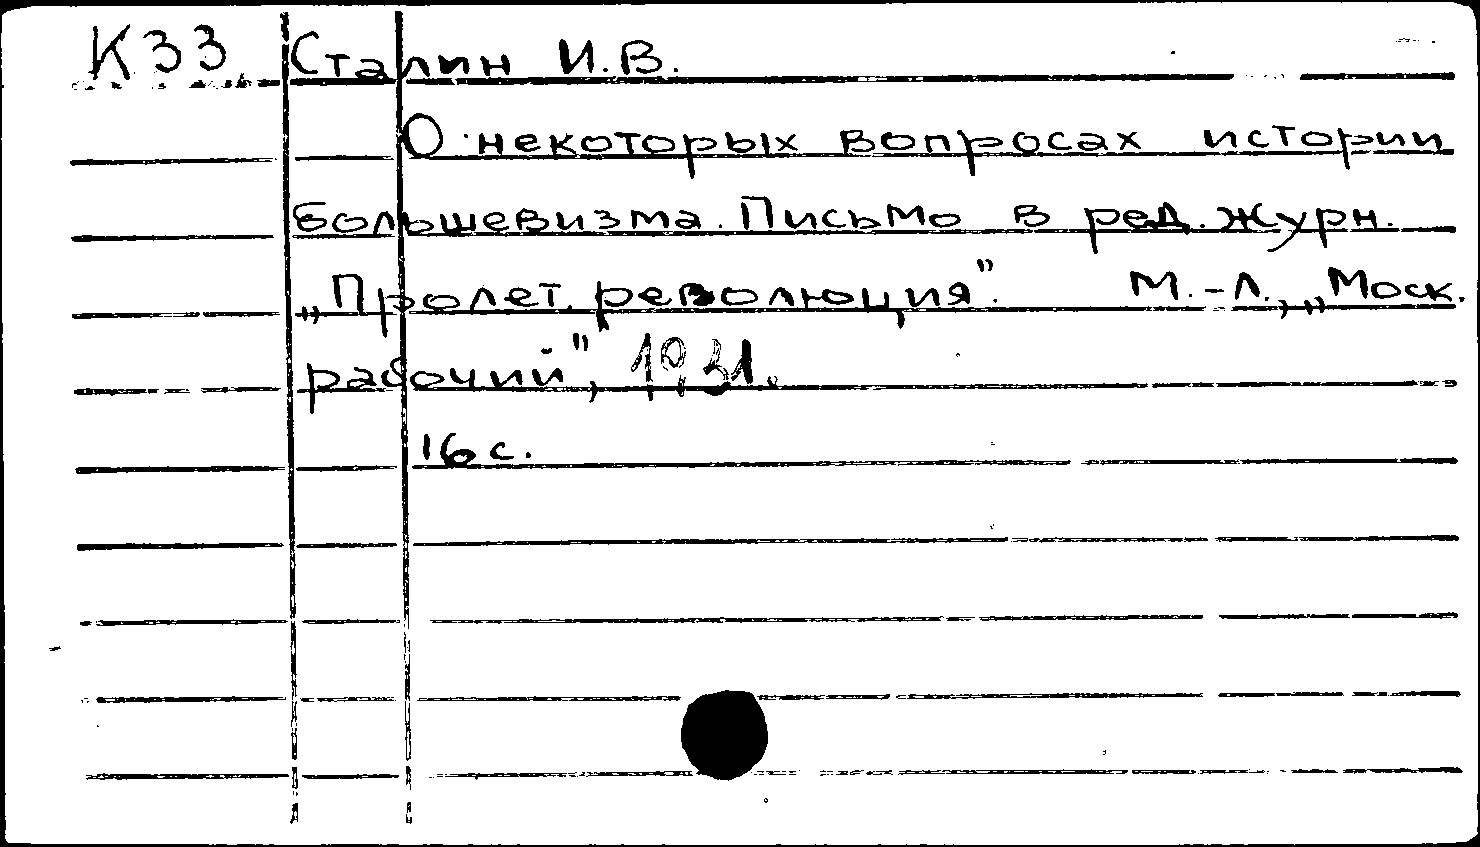 К33 Сталин И.В.
О некоторых вопросах истории
большевизма. Письмо в ред. журн.
„Пролет. революция". М.-Л., „Моск.
рабочий", 1931.
16 с.